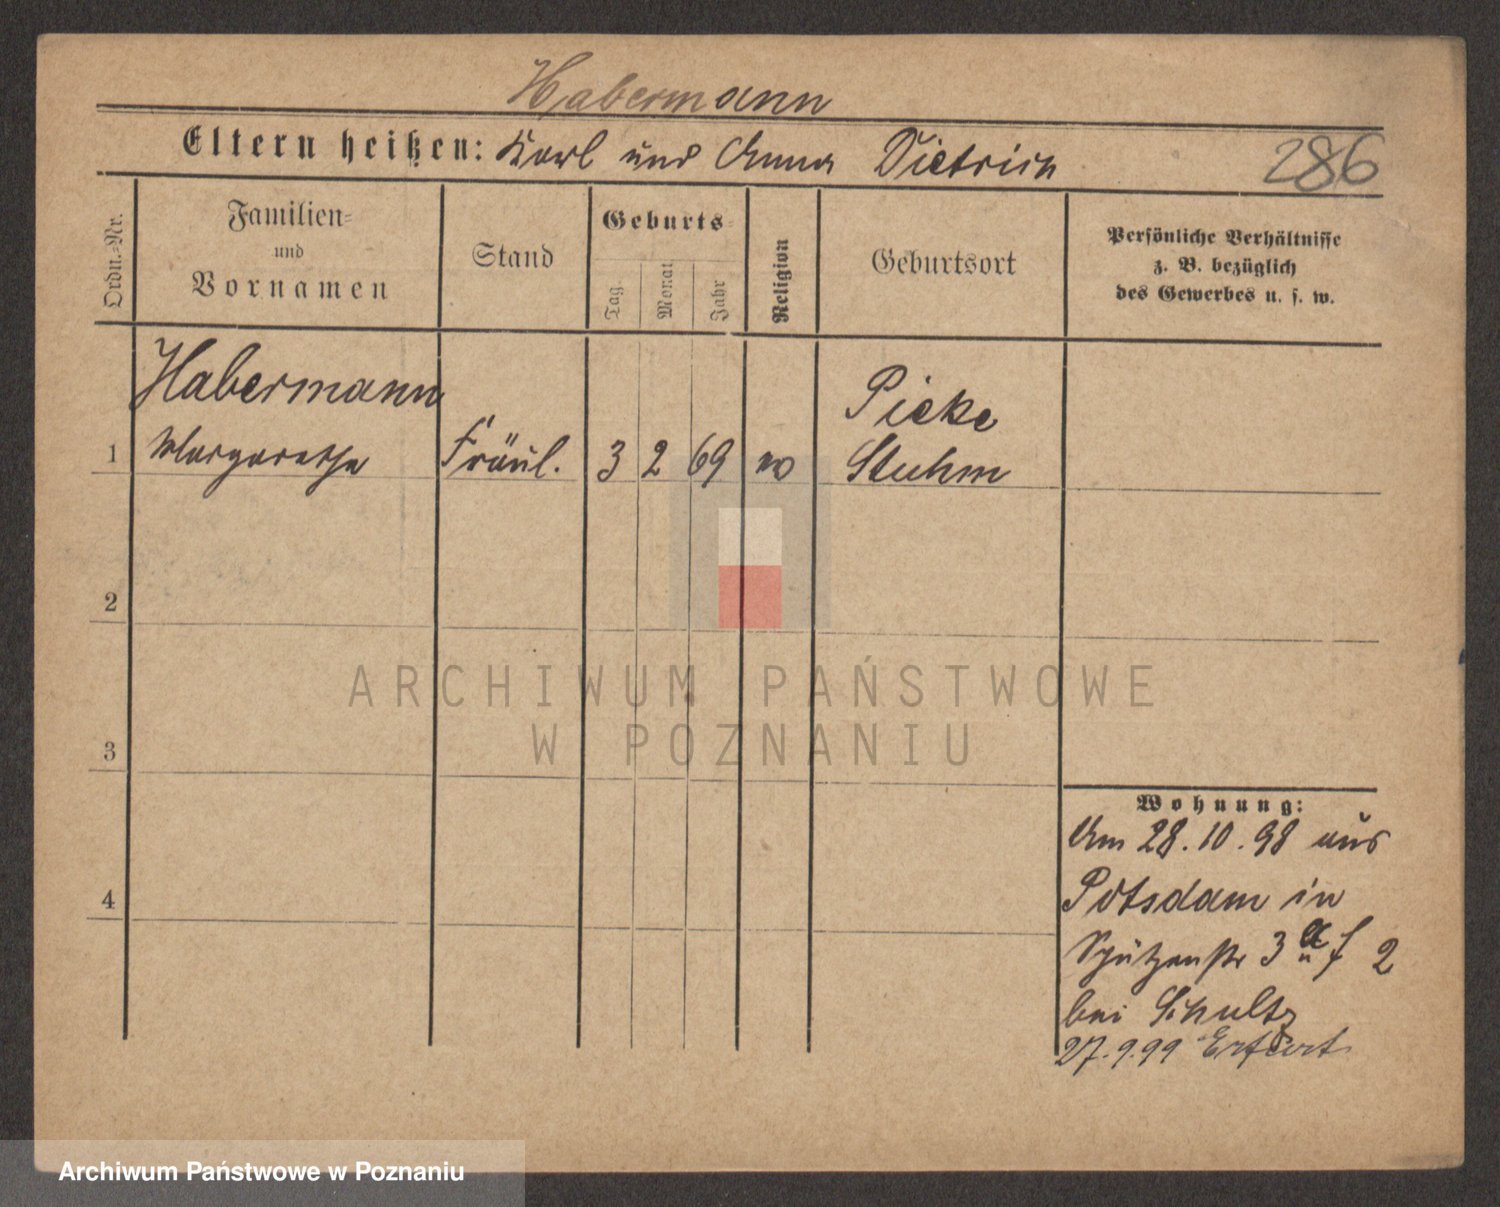 Habermann
Eltern heißen: Karl und Anna Dietrich
286
Ordn.-Nr.
Familien-
und
Vornamen
Stand
Geburts-
Tag
Monat
Jahr
Religion
Geburtsort
Persönliche Verhältnisse
z. B. bezüglich
des Gewerbes u. s. w.
Habermann
Pieke
1 Margarethe Fräul. 3 2 69 Stuhm
2
3
4
Wohnung:
Am 28.10.98 aus
Potsdam in
Schützenstr 3 a 2
bei Schultz
27.9.99 Erfurt
ARCHIWUM PAŃSTWOWE
W POZNANIU
Archiwum Państwowe w Poznaniu